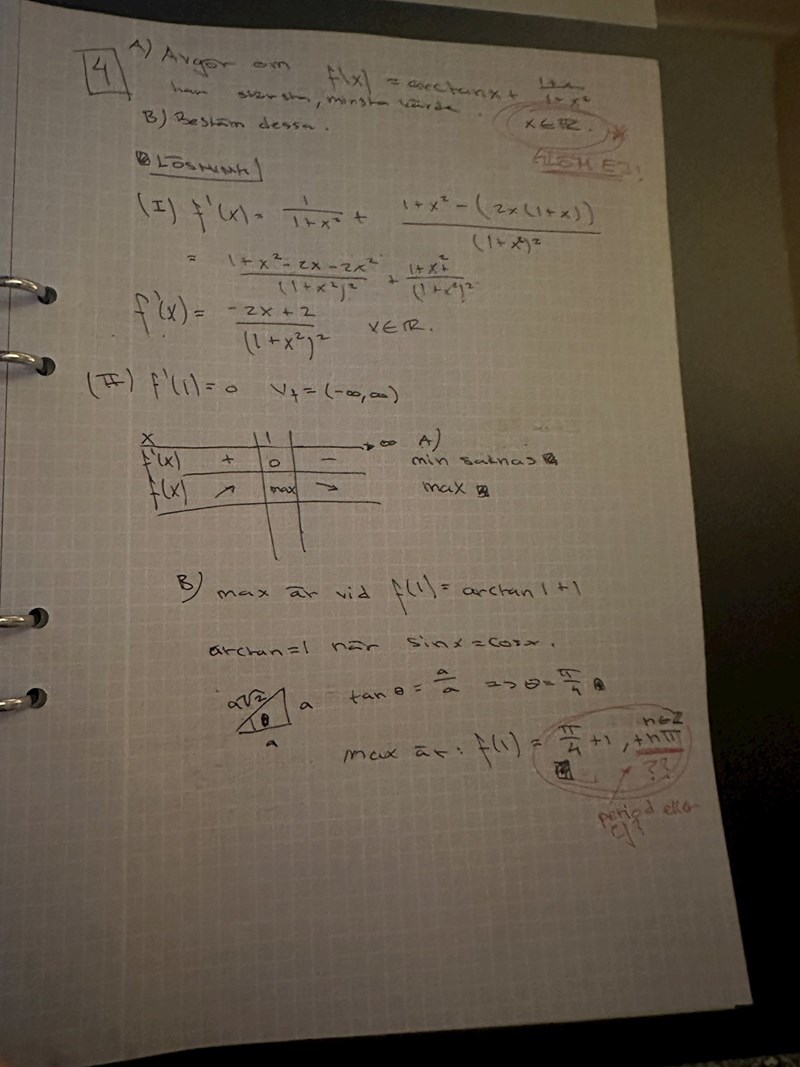 4
A) Avgör om f(x) = arctanx + 1+x / 1+x²
har största, minsta värde.
x∈ℝ.
B) Bestäm dessa.
GLÖM EJ!
LÖSNING
(I) f'(x) = 1 / 1+x² + 1+x² - (2x(1+x)) / (1+x²)²
= 1+x²-2x-2x² / (1+x²)² + 1+x² / (1+x²)²
f'(x) = -2x+2 / (1+x²)² x∈ℝ.
(II) f'(1) = 0 Vf = (-∞,∞)
x 1 ∞ A)
f'(x) + 0 - min saknas
f(x) ↗ max ↘ max
B) max är vid f(1) = arctan 1+1
arctan=1 när sinx=cosx.
a√2 θ a a tan θ = a/a => θ = π/4
max är: f(1) = π/4 +1, +nπ n∈Z
??
period eller
ej?